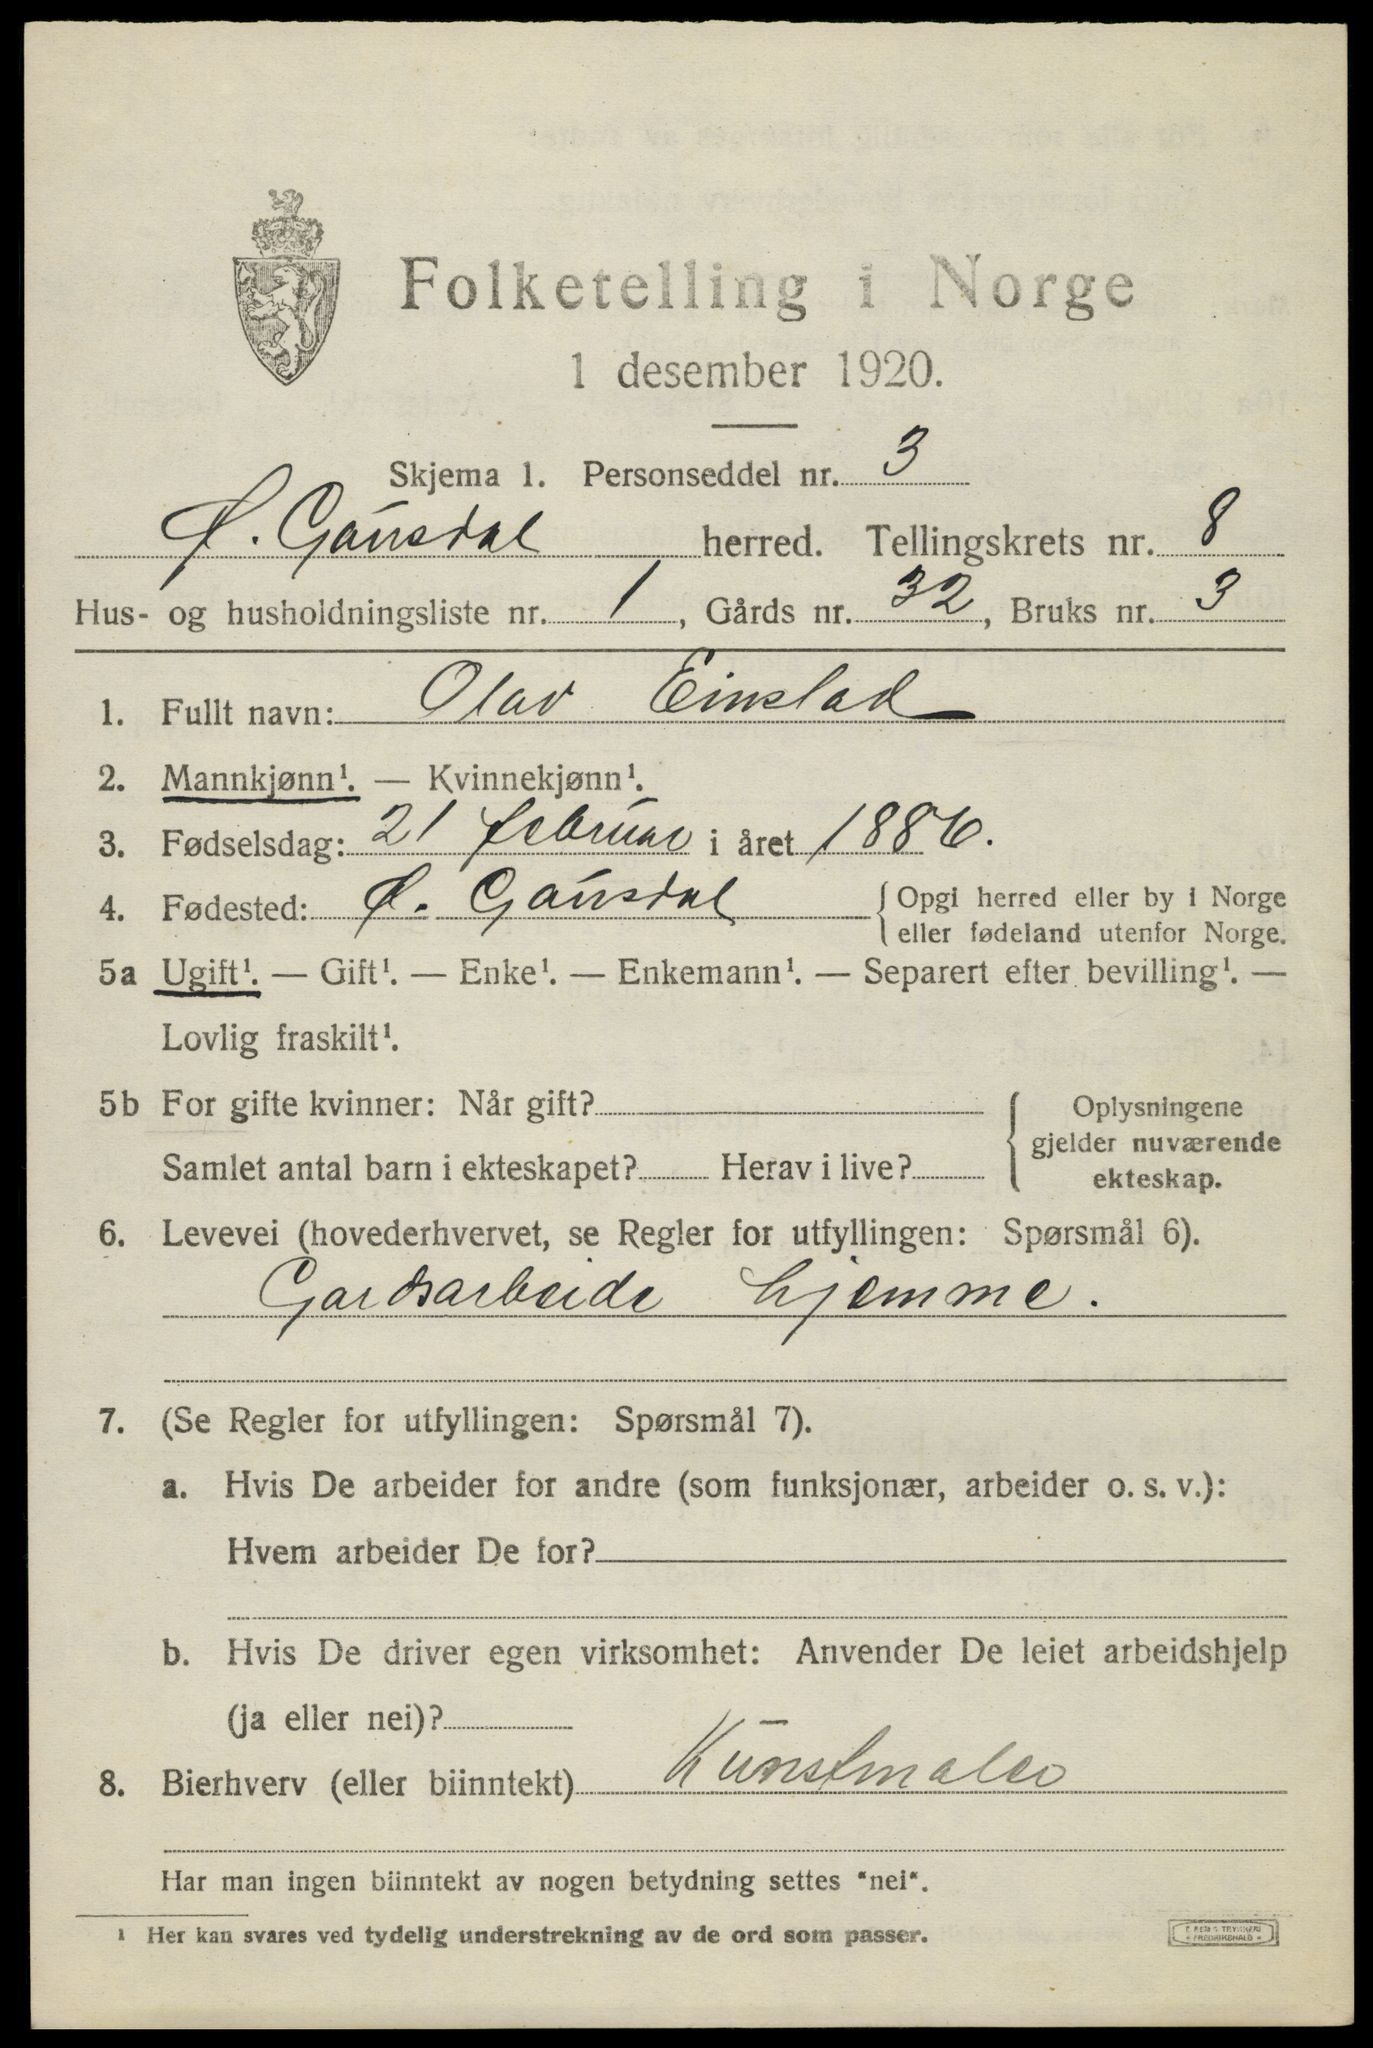 Folketelling i Norge
1 desember 1920.
Skjema 1. Personseddel nr. 3
Ø. Gausdal herred. Tellingskrets nr. 8
Hus- og husholdningsliste nr. 1, Gårds nr. 32, Bruks nr. 3
1. Fullt navn: Olav Einstad
2. Mannkjønn¹. — Kvinnekjønn¹.
3. Fødselsdag: 21 februar i året 1886.
4. Fødested: Ø. Gausdal {Opgi herred eller by i Norge
eller fødeland utenfor Norge.
5a Ugift¹. — Gift¹. — Enke¹. — Enkemann¹. — Separert efter bevilling¹. —
Lovlig fraskilt¹.
5b For gifte kvinner: Når gift? { Oplysningene
gjelder nuværende
Samlet antal barn i ekteskapet? Herav i live? ekteskap.
6. Levevei (hovederhvervet, se Regler for utfyllingen: Spørsmål 6).
Gardsarbeide hjemme.
7. (Se Regler for utfyllingen: Spørsmål 7).
a. Hvis De arbeider for andre (som funksjonær, arbeider o. s. v.):
Hvem arbeider De for?
b. Hvis De driver egen virksomhet: Anvender De leiet arbeidshjelp
(ja eller nei)?
8. Bierhverv (eller biinntekt) Kunstmaler
Har man ingen biinntekt av nogen betydning settes "nei".
¹ Her kan svares ved tydelig understrekning av de ord som passer.